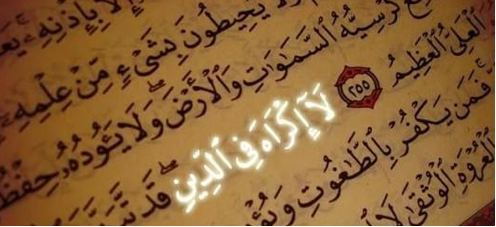 إِلَّا بِإِذْنِهِۦ
يُحِيطُونَ بِشَىْءٍ مِّنْ عِلْمِهِۦٓ
كُرْسِيُّهُ ٱلسَّمَـٰوَٰتِ وَٱلْأَرْضَ ۖ وَلَا يَـُٔودُهُۥ
ٱلْعَلِىُّ ٱلْعَظِيمُ ٢٥٥ لَآ إِكْرَاهَ فِى ٱلدِّينِ ۖ قَد
فَمَن يَكْفُرْ بِٱلطَّـٰغُوتِ
ٱلْعُرْوَةِ ٱلْوُثْقَىٰ لَا